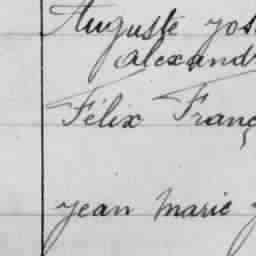 Auguste Jos
Alexand
Félix Franç
Jean Marie J